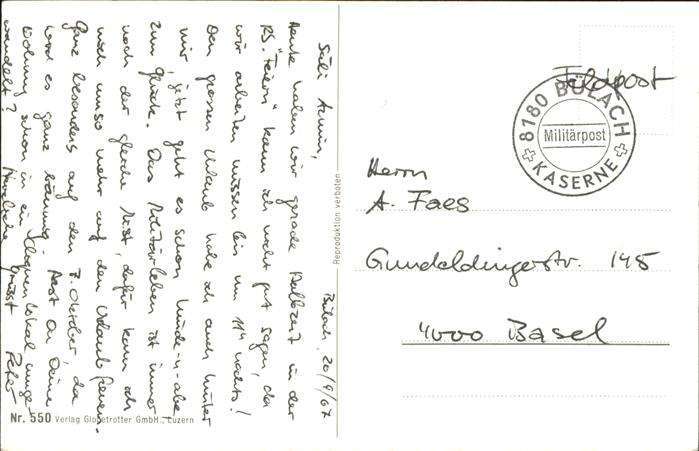 Bülach, 20/9/67
Sali Armin,
Heute haben wir gerade Halbzeit in der
RS. "Feiern" kann ich nicht gut sagen, da
wir arbeiten müssen bis um 11⁰⁰ nachts!
Den grossen Urlaub habe ich auch hinter
mir, jetzt geht es schon hinde-n-abe
zum Glück. Das Militärleben ist immer
noch der gleiche Mist, dafür kann ich
mich umso mehr auf den Urlaub freuen.
Ganz besonders auf den 7. Oktober, da
wird es ganz bäumig. Hast Du Deine
Wohnung schon in ein Lokal umge-
wandelt? Herzliche Grüsst Peter
Nr. 550 Verlag Globetrotter GmbH., Luzern
Reproduktion verboten
Feldpost
8180 BÜLACH
Militärpost
KASERNE
Herrn
A. Faes
Gundeldingerstr. 145
4000 Basel